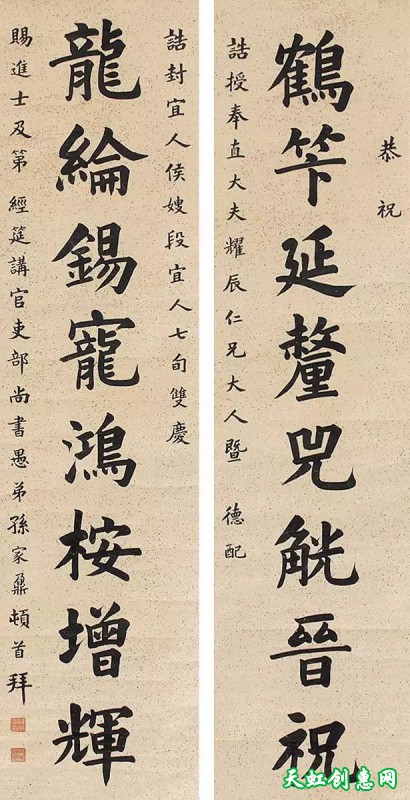 恭祝
鶴笇延釐兕觥晉祝
誥授奉直大夫耀辰仁兄大人暨 德配
誥封宜人侯嫂段宜人七旬雙慶
龍綸錫寵鴻桉增輝
賜進士及第 經筵講官吏部尚書愚弟孫家鼐頓首拜
天虹创惠网